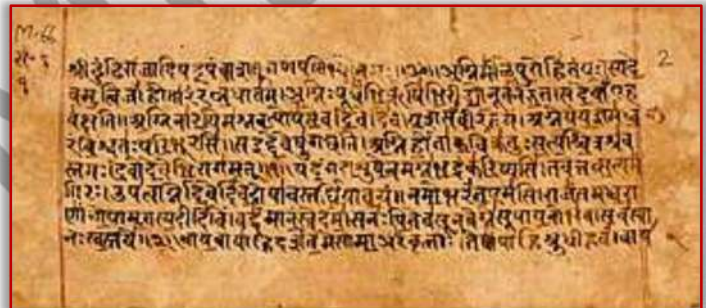 2
श्रीढुंढिराजादि नमः॥ अग्निमीळेपुरोहितंयज्ञस्यदे
वमृत्विजं॥होतारंरत्नधातमं॥अग्निःपूर्वेभिर्ऋषिभिरीड्योनूतनैरुत॥सदेवाँएह
वक्षति॥अग्निनारयिमश्नवत्पोषमेवदिवेदिवे॥यशसंवीरवत्तमं॥अग्नेयंयज्ञमध्व
रंविश्वतःपरिभूरसि॥सइद्देवेषुगच्छति॥अग्निर्होताकविक्रतुःसत्यश्चित्रश्रव
स्तमः॥देवोदेवेभिरागमत्॥१॥यदंगदाशुषेत्वमग्नेभद्रंकरिष्यसि॥तवेत्तत्सत्यमं
गिरः॥उपत्वाग्नेदिवेदिवेदोषावस्तर्धियावयं॥नमोभरंतएमसि॥राजंतमध्वरा
णांगोपामृतस्यदीदिविं॥वर्धमानंस्वेदमे॥सनःपितेवसूनवेग्नेसूपायनोभव॥सचस्वा
नःस्वस्तये॥२॥वायवायाहिदर्शतेमेसोमाअरंकृताः॥तेषांपाहिश्रुधीहवं॥वाय